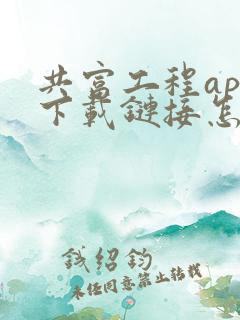 共富工程ap
下載鏈接怎
錢紹鈞
未经同意禁止转载